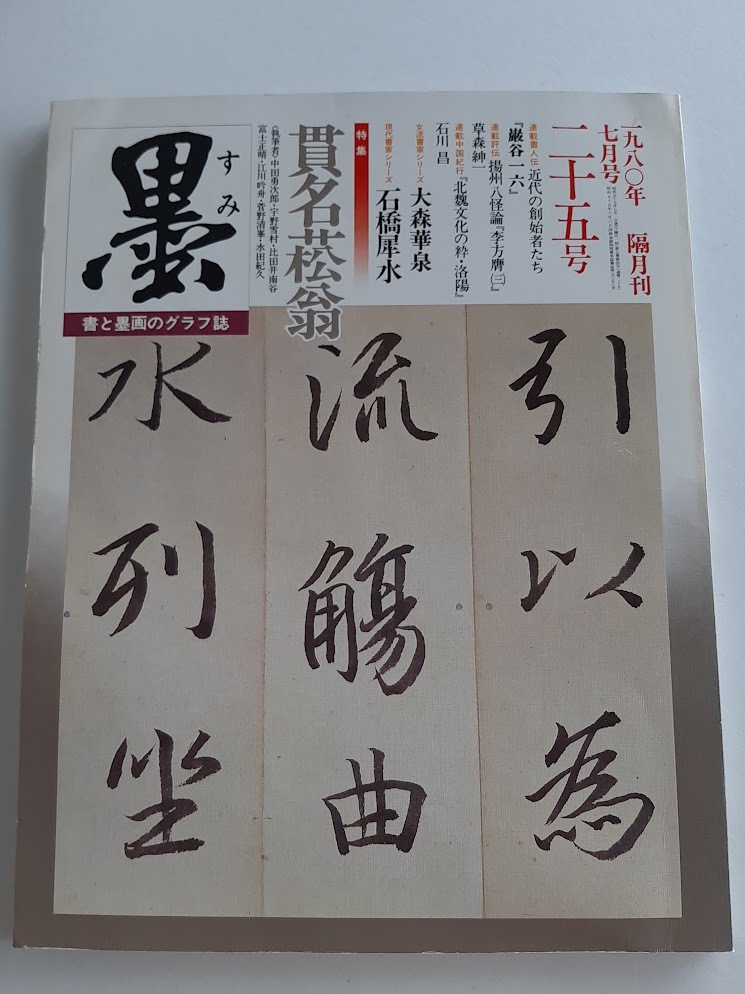 一九八〇年 隔月刊
七月号
二十五号
連載書人伝 近代の創始者たち
『巌谷一六』
連載評伝 揚州八怪論『李方膺㈢』
草森紳一
連載中国紀行『北魏文化の粋・洛陽』
石川 昌
女流書家シリーズ 大森華泉
現代書家シリーズ 石橋犀水
特集
貫名菘翁
〈執筆者〉中田勇次郎・宇野雪村・比田井南谷
富士正晴・江川吟舟・菅野清峯・水田紀久
すみ
墨
書と墨画のグラフ誌
引以為
流觴曲
水列坐